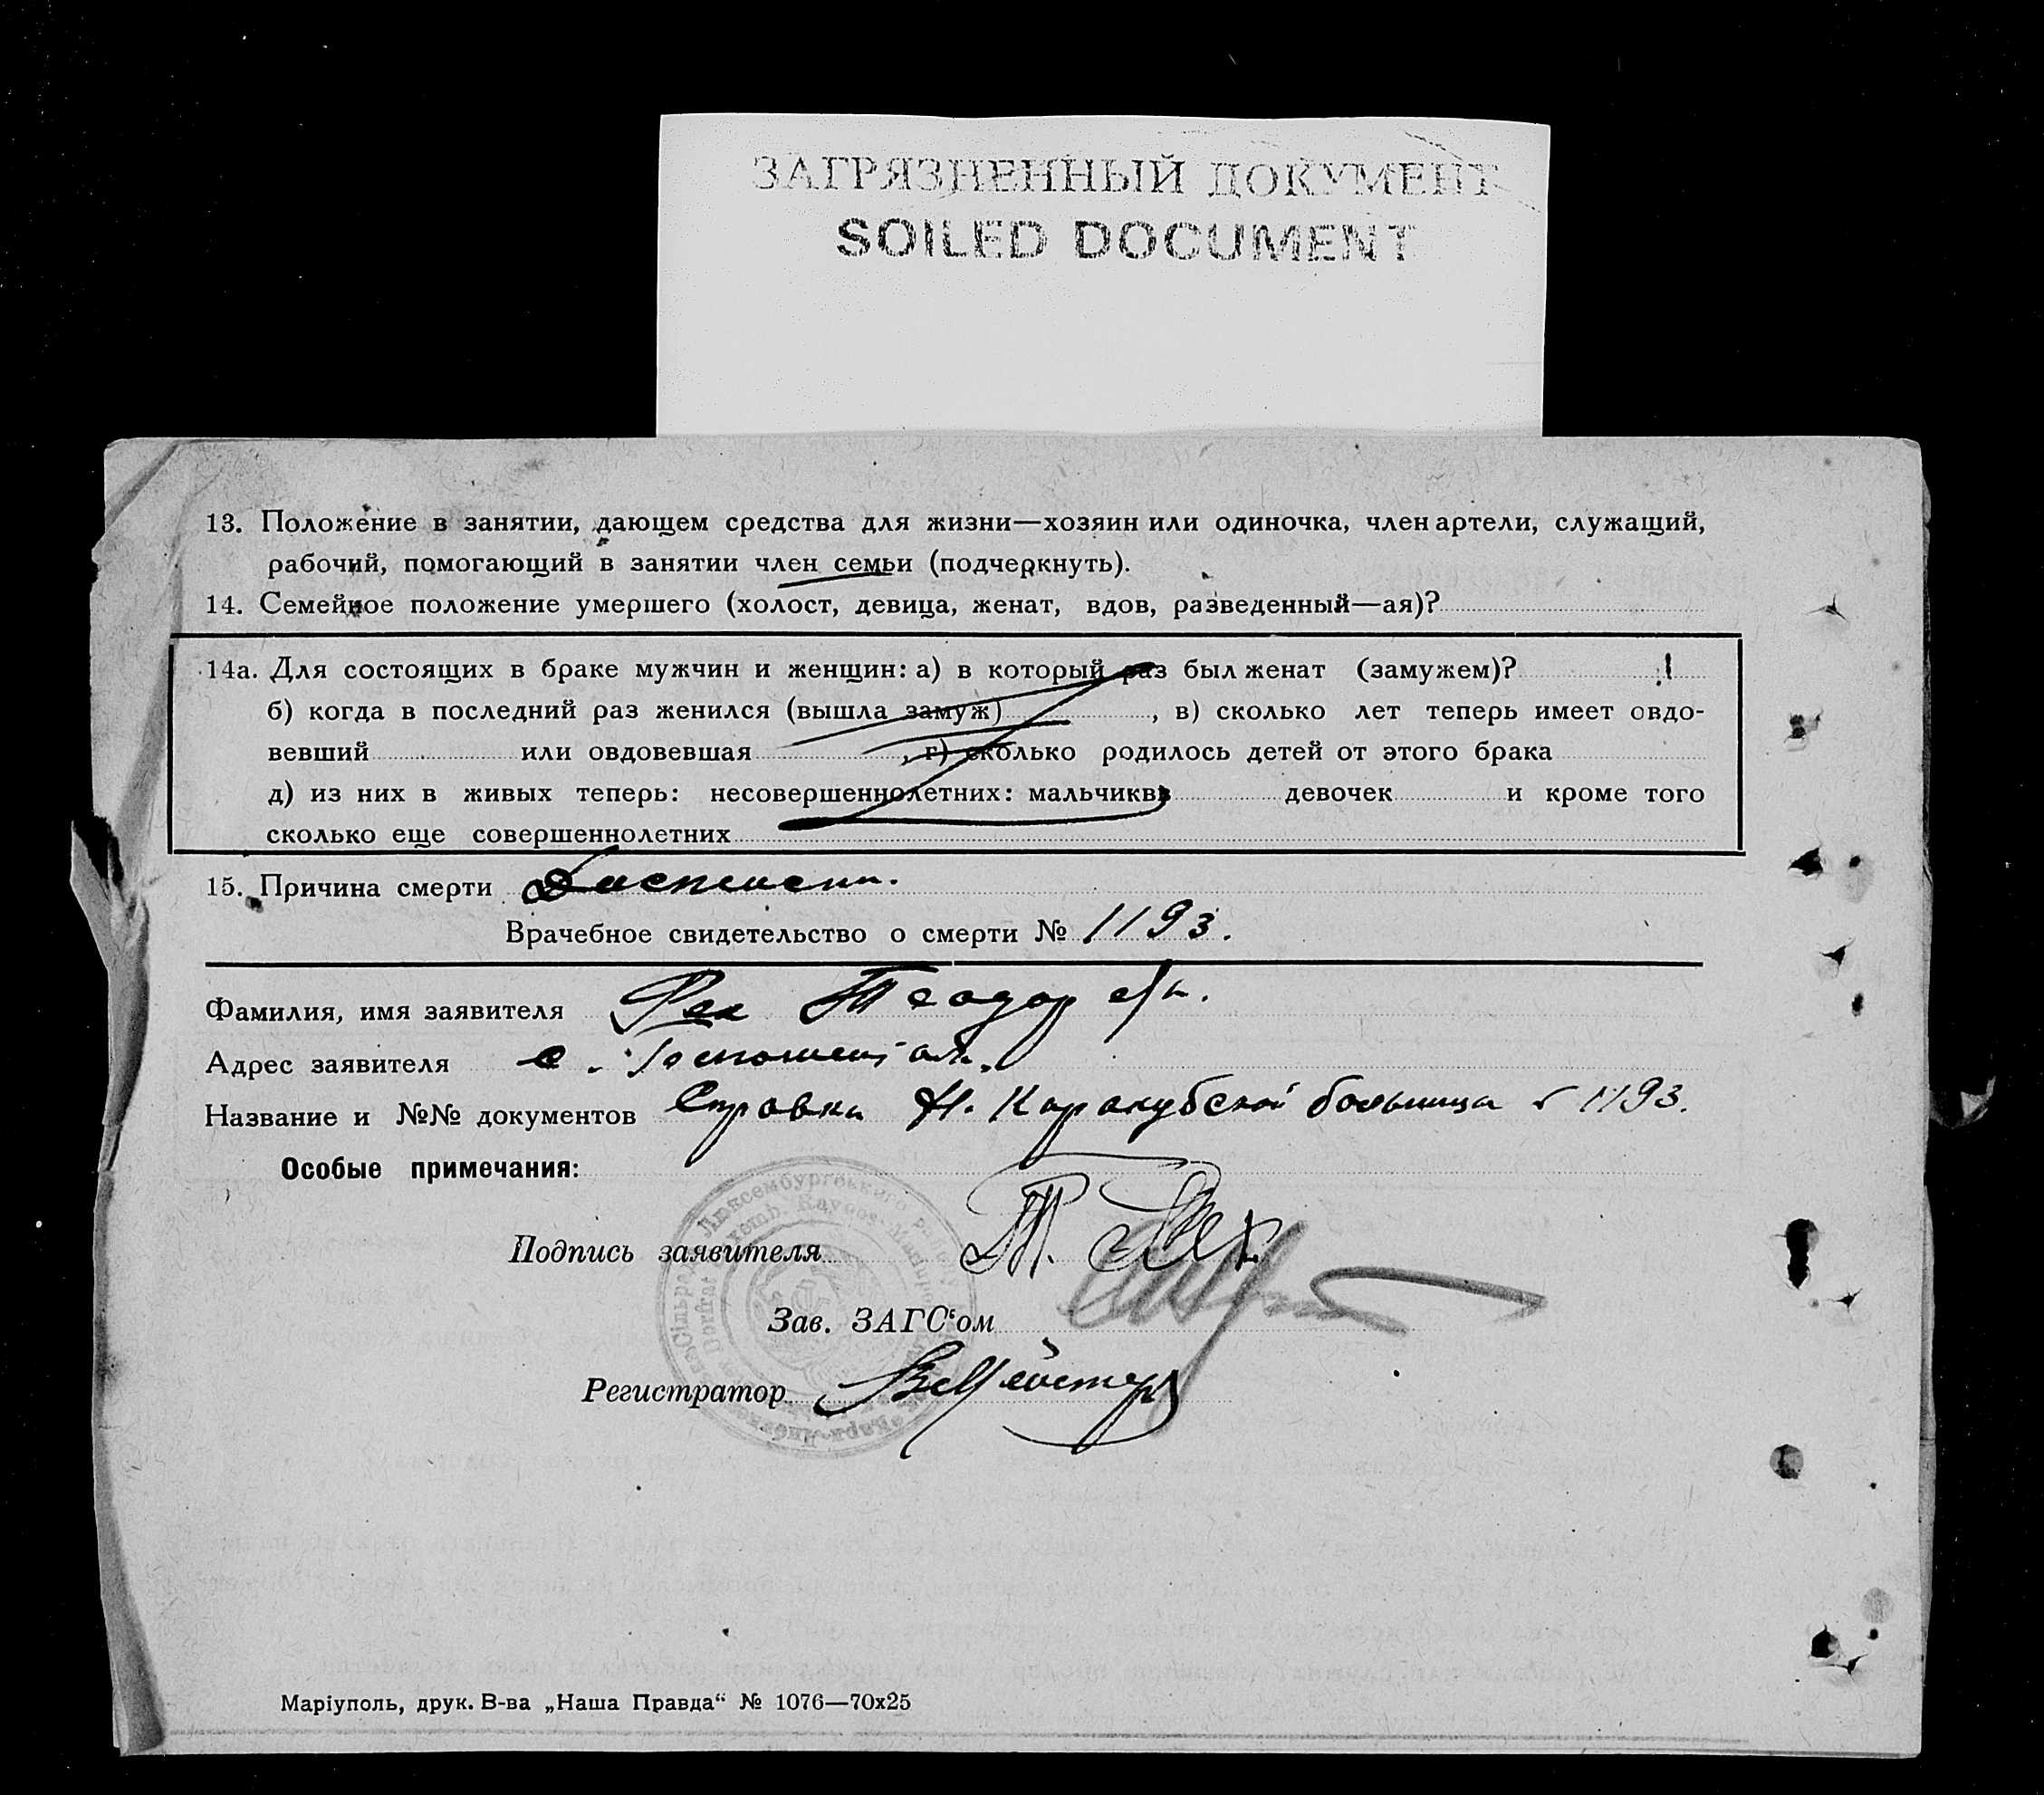 ЗАГРЯЗНЕННЫЙ ДОКУМЕНТ
SOILED DOCUMENT
13. Положение в занятии, дающем средства для жизни—хозяин или одиночка, член артели, служащий,
рабочий, помогающий в занятии член семьи (подчеркнуть).
14. Семейное положение умершего (холост, девица, женат, вдов, разведенный—ая)?
14а. Для состоящих в браке мужчин и женщин: а) в который раз был женат (замужем)?
б) когда в последний раз женился (вышла замуж) , в) сколько лет теперь имеет овдо-
вевший или овдовевшая , г) сколько родилось детей от этого брака
д) из них в живых теперь: несовершеннолетних: мальчиков девочек и кроме того
сколько еще совершеннолетних
15. Причина смерти
Врачебное свидетельство о смерти № 1193.
Фамилия, имя заявителя Теодор
Адрес заявителя с.
Название и №№ документов Справка Н. Каракубской больница 1193.
Особые примечания:
Люксембургського
Подпись заявителя
Зав. ЗАГС‘ом
Регистратор
Маріуполь, друк. В-ва „Наша Правда“ № 1076—70х25